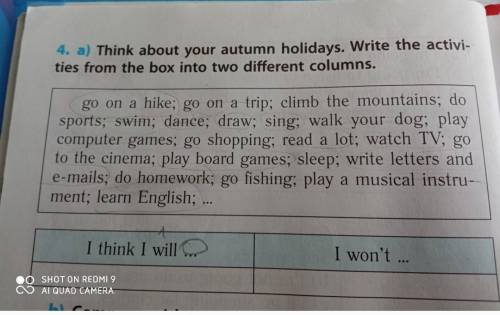 4. a) Think about your autumn holidays. Write the activi-
ties from the box into two different columns.
go on a hike; go on a trip; climb the mountains; do
sports; swim; dance; draw; sing; walk your dog; play
computer games; go shopping; read a lot; watch TV; go
to the cinema; play board games; sleep; write letters and
e-mails; do homework; go fishing; play a musical instru-
ment; learn English; ...
I think I will ...
I won't ...
SHOT ON REDMI 9
AI QUAD CAMERA